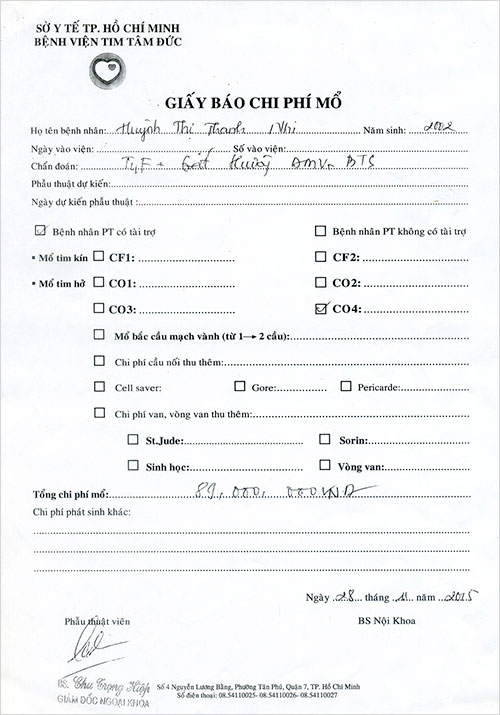 SỞ Y TẾ TP. HỒ CHÍ MINH
BỆNH VIỆN TIM TÂM ĐỨC
GIẤY BÁO CHI PHÍ MỔ
Họ tên bệnh nhân: Huỳnh Thị Thanh Nhi Năm sinh: 2002
Ngày vào viện: Số vào viện:
Chẩn đoán: T4F BTS
Phẫu thuật dự kiến:
Ngày dự kiến phẫu thuật :
☑ Bệnh nhân PT có tài trợ ☐ Bệnh nhân PT không có tài trợ
▪ Mổ tim kín ☐ CF1: ☐ CF2:
▪ Mổ tim hở ☐ CO1: ☐ CO2:
☐ CO3: ☑ CO4:
☐ Mổ bắc cầu mạch vành (từ 1→ 2 cầu):
☐ Chi phí cầu nối thu thêm:
☐ Cell saver: ☐ Gore: ☐ Pericarde:
☐ Chi phí van, vòng van thu thêm:
☐ St.Jude: ☐ Sorin:
☐ Sinh học: ☐ Vòng van:
Tổng chi phí mổ: 89,000,000VND
Chi phí phát sinh khác:
Ngày 28 tháng 11 năm 2015
Phẫu thuật viên BS Nội Khoa
BS. Chu Trọng Hiệp
GIÁM ĐỐC NGOẠI KHOA
Số 4 Nguyễn Lương Bằng, Phường Tân Phú, Quận 7, TP. Hồ Chí Minh
Số điện thoại: 08.54110025- 08.54110026- 08.54110027